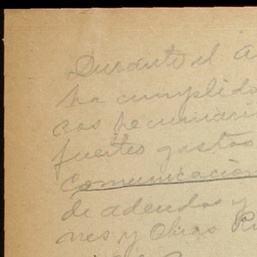 Durante el a
ha cumplido
cas pecuniari
fuertes gastos
comunicacion
de adeudos y
nes y Otros